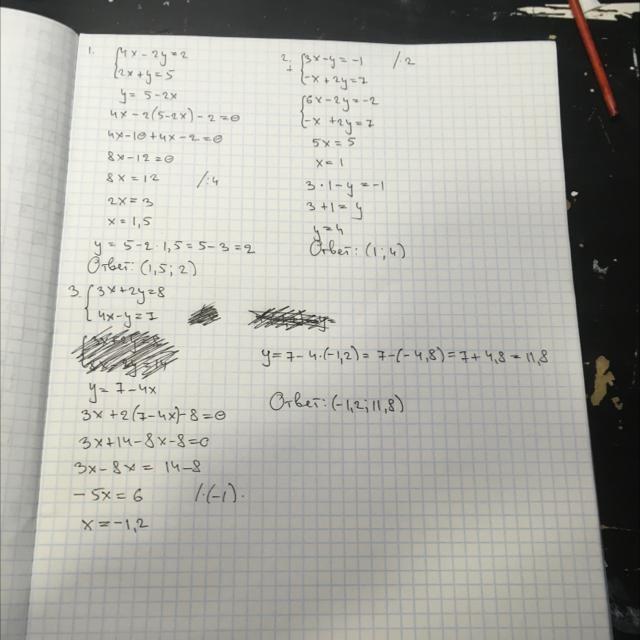 1. {4x-2y=2
{2x+y=5
y=5-2x
4x-2(5-2x)-2=0
4x-10+4x-2=0
8x-12=0
8x=12 /:4
2x=3
x=1,5
y=5-2·1,5=5-3=2
Ответ: (1,5; 2)
2. {3x-y=-1 /·2
+ {-x+2y=7
{6x-2y=-2
{-x+2y=7
5x=5
x=1
3·1-y=-1
3+1=y
y=4
Ответ: (1; 4)
3. {3x+2y=8
{4x-y=7
y=7-4x
3x+2(7-4x)-8=0
3x+14-8x-8=0
3x-8x=14-8
-5x=6 /·(-1).
x=-1,2
y=7-4·(-1,2)=7-(-4,8)=7+4,8=11,8
Ответ: (-1,2; 11,8)